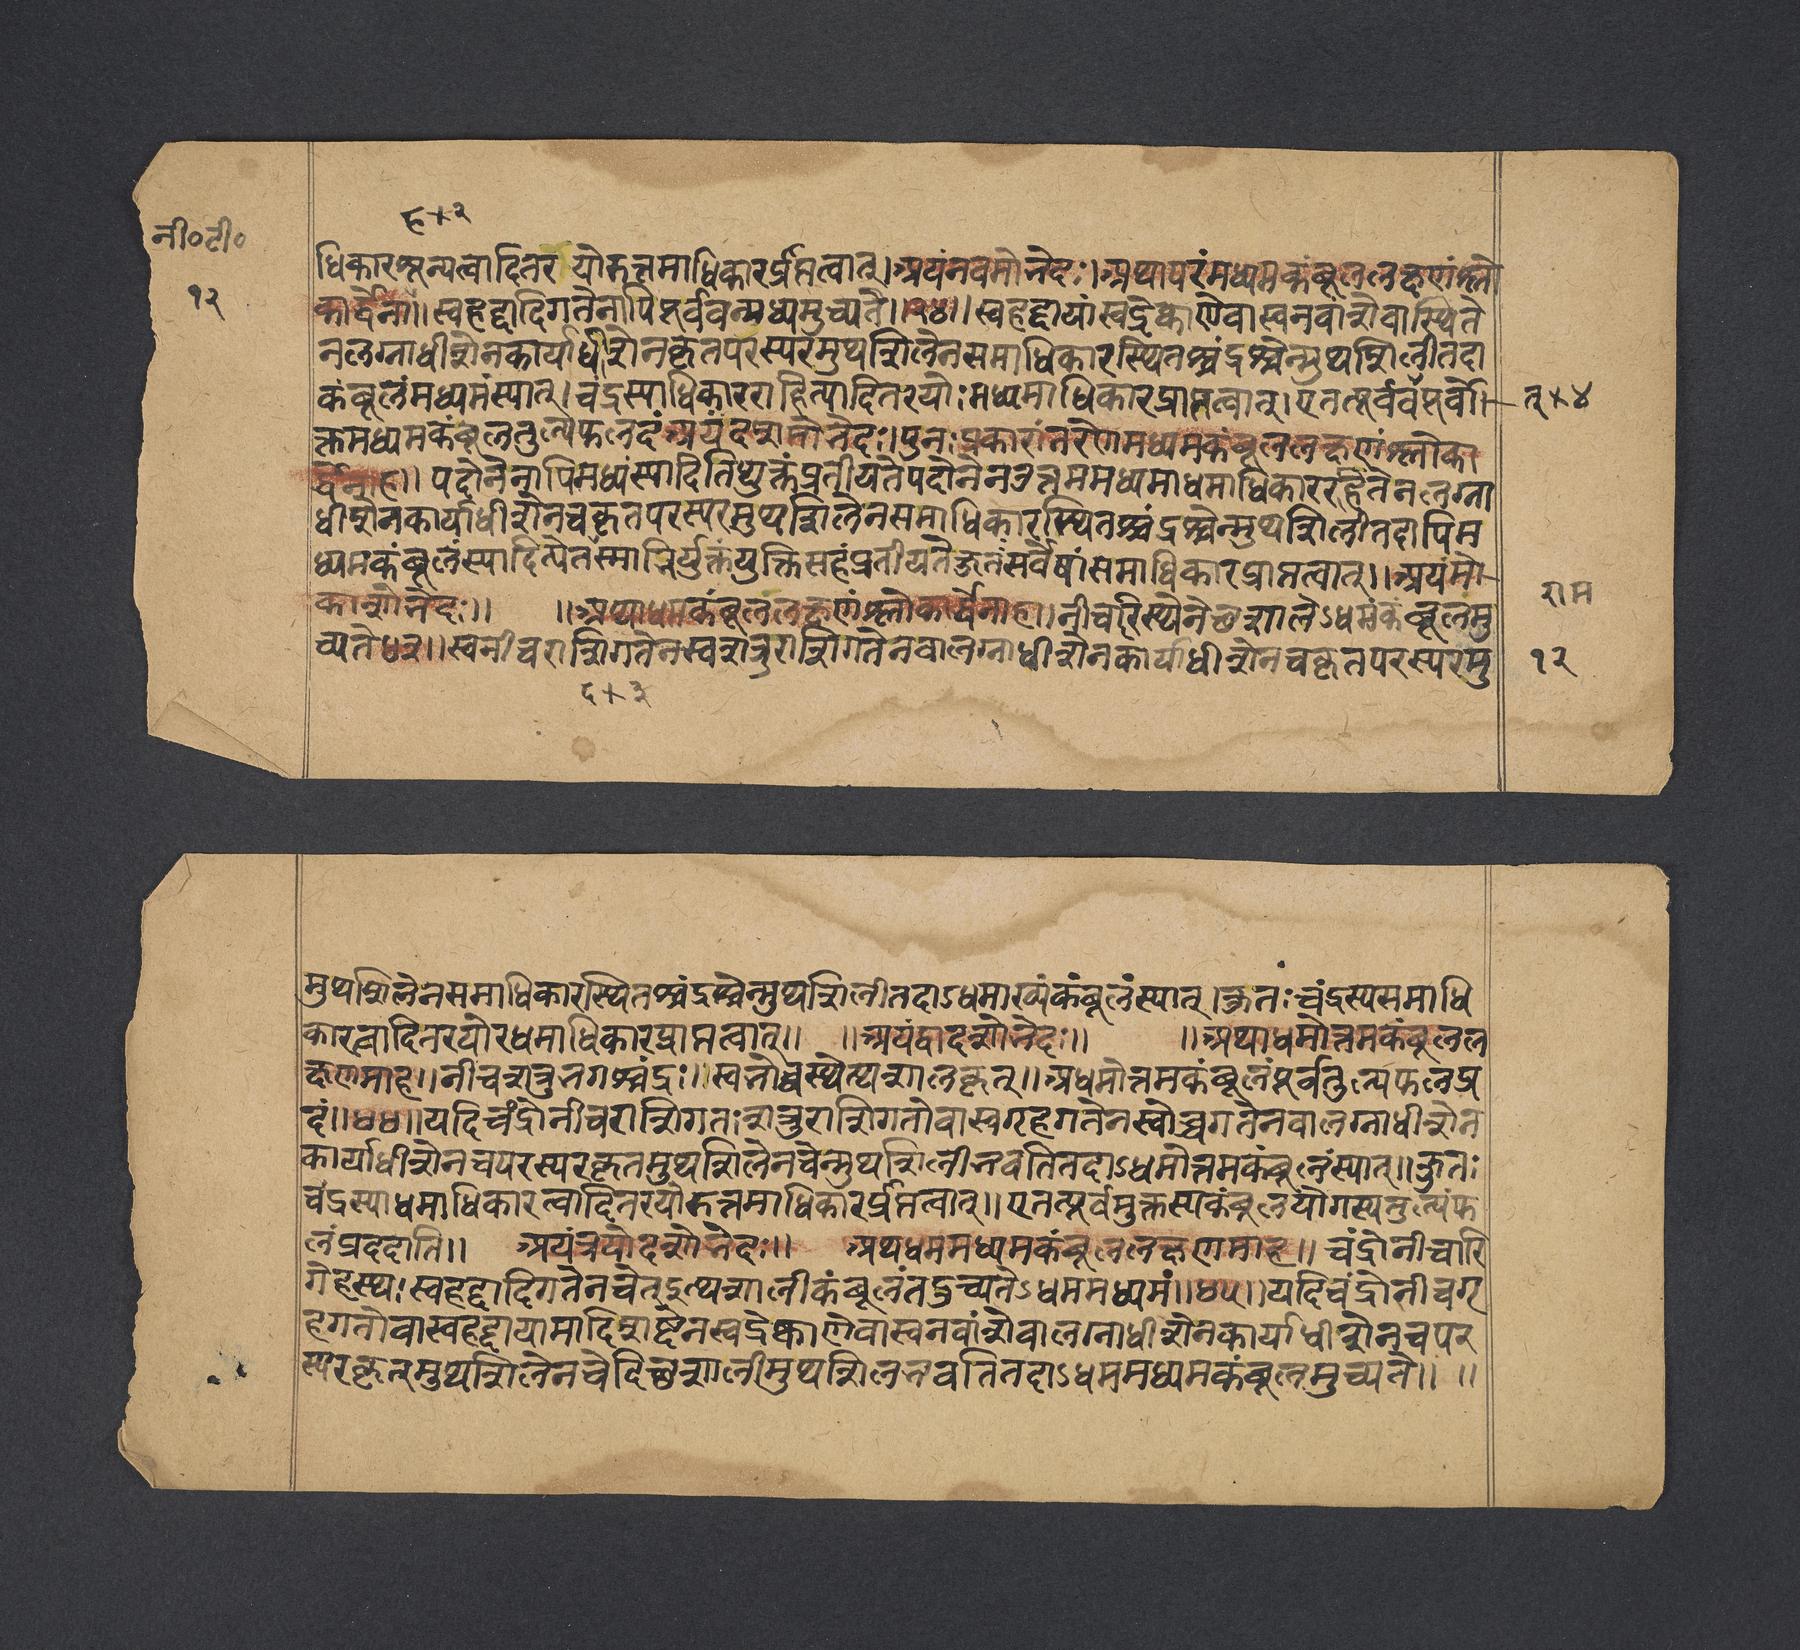 ह+२
नी०टी०
१२
धिकारशून्यत्वादितरयोरुत्तमाधिकारप्राप्तत्वात्।अयंनवमोभेदः।अथापरंमध्यमकंबूललक्षणंश्लो
कार्द्धेना॥स्वहद्दादिगतेनापिपूर्ववन्मध्यमुच्यते॥२४॥स्वहद्दायांस्वद्रेष्काणेवास्वनवांशेवास्थिते
नलग्नाधीशेनकार्याधीशेनकृतपरस्परमुथशिलेनसमाधिकारस्थितश्चंद्रश्चेन्मुथशिलीतदा
कंबूलंमध्यमंस्यात्।चंद्रस्याधिकारराहित्यादितरयोःमध्यमाधिकारप्राप्तत्वात्।एतत्पूर्ववंपूर्वो
त्×४
क्तमध्यमकंबूलतुल्यफलदंअयंदशमोभेदः।पुनःप्रकारांतरेणमध्यमकंबूललक्षणंश्लोका
र्धेनाह॥पदोनेनापिमध्यंस्यादितिद्युक्तंप्रतीयतेपदोनेनउत्तममध्यमाधमाधिकाररहितेनलग्ना
धीशेनकार्याधीशेनचकृतपरस्परमुथशिलेनसमाधिकारस्थितश्चंद्रश्चेन्मुथशिलीतदापिम
ध्यमकंबूलंस्यादित्येतस्मान्निर्युक्तंयुक्तिसहंप्रतीयतेकुतंसर्वेषांसमाधिकारप्राप्तत्वात्॥अयमे
कादशोभेदः॥ ॥अथाधमकंबूललक्षणंश्लोकार्धेनाह॥नीचारिस्थेनेछशालेऽधमंकंबूलमु
राम
च्यते४२॥स्वनीचराशिगतेनस्वशत्रुराशिगतेनवालग्नाधीशेनकार्याधीशेनचकृतपरस्परमु
१२
द+३
मुथशिलेनसमाधिकारस्थितश्चंद्रश्चेन्मुथशिलीतदाऽधमाख्यंकंबूलंस्यात्।कुतःचंद्रस्यसमाधि
कारत्वादितरयोरधमाधिकारप्राप्तत्वात्॥ ॥अयंद्वादशोभेदः॥ ॥अथाधमोत्तमकंबूलल
क्षणमाह॥नीचशत्रुभगश्चंद्रः॥स्वभोच्चस्थेत्थशालकृत्॥अधमोत्तमकंबूलंपूर्वतुल्यफलप्र
दं॥४४॥यदिचंद्रोनीचराशिगतःशत्रुराशिगतोवास्वगृहगतेनस्वोच्चगतेनवालग्नाधीशेन
कार्याधीशेनचपरस्परकृतमुथशिलेनचेन्मुथशिलीभवतितदाऽधमोत्तमकंबूलंस्यात्॥कुतः
चंद्रस्याधमाधिकारत्वादितरयोरुत्तमाधिकारप्राप्तत्वात्॥एतत्पूर्वमुक्तस्यकंबूलयोगस्यतुल्यंफ
लंप्रददाति॥ अयंत्रयोदशोभेदः॥ अथधममध्यमकंबूललक्षणमाह॥ चंद्रोनीचारि
गेहस्थः।स्वहद्दादिगतेनचेत्इत्थशालीकंबूलंतदुच्यतेऽधममध्यमं॥४५॥यदिचंद्रोनीचगृ
हगतोवास्वहद्दायामादिशब्देनस्वद्रेष्काणेवास्वनवांशेवालग्नाधीशेनकार्याधीशेनचपर
स्परकृतमुथशिलेनचेदिछशालीमुथशिलभवतितदाऽधममध्यमकंबूलमुच्यते॥ ॥